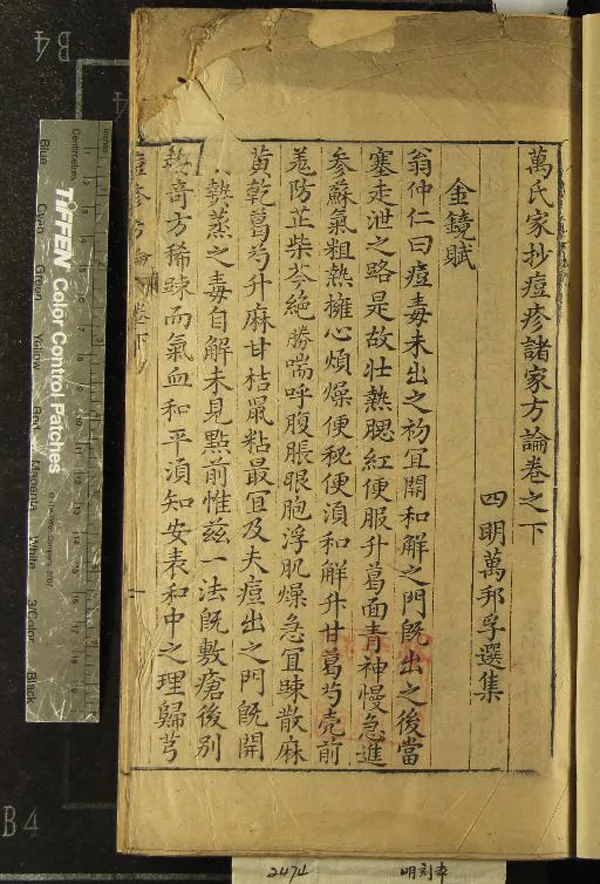 萬氏家抄痘疹諸家方論卷之下
四明萬邦孚選集
金鏡賦
翁仲仁曰痘毒未出之初宜開和解之門既出之後當
塞走泄之路是故壯熱腮紅便服升葛面青神慢急進
參蘇氣粗熱擁心煩燥便秘便湏和解升甘葛芍壳前
羗防芷柴芩絶勝喘呼腹脹眼胞浮肌燥急宜踈散麻
黄乾葛芍升麻甘桔鼠粘最宜及夫痘出之門既開
熱蒸之毒自解未見點前惟茲一法既敷瘡後别
奇方稀踈而氣血和平湏知安表和中之理歸芎
痘疹方論 卷下
B4
4
B4
Inches
Centimetres
TIFFEN Color Control Patches
© The Tiffen Company, 2007
Blue
Cyan
Green
Yellow
Red
Magenta
White
3/Color
Black
2474
明刻本